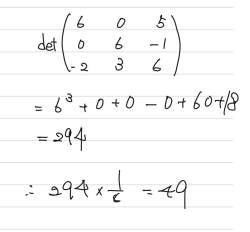 det(6 0 5
0 6 -1
-2 3 6)
= 6³ + 0 + 0 - 0 + 60 + 18
= 294
∴ 294 × 1/6 = 49